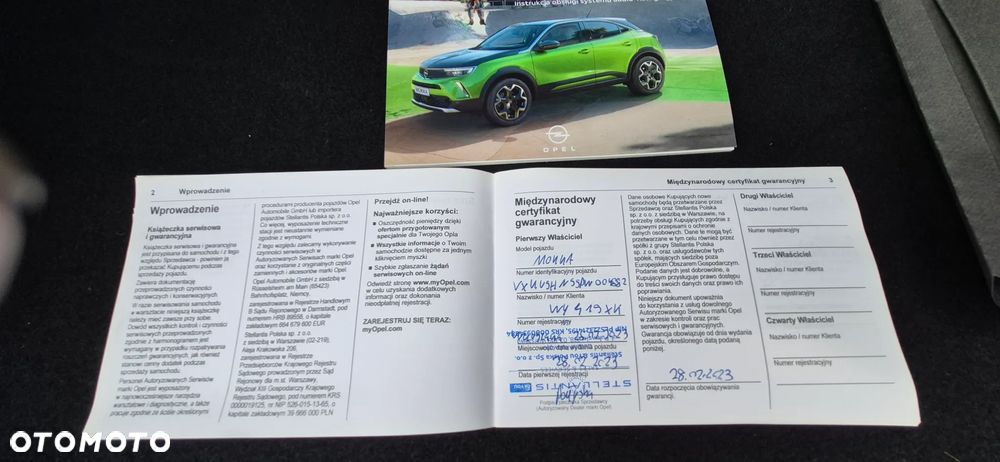 Instrukcja obsługi systemu audio-nawigacji
OPEL
2 Wprowadzenie
Wprowadzenie
Książeczka serwisowa
i gwarancyjna
Książeczka serwisowa i gwarancyjna
jest przypisana do samochodu i z tego
względu Sprzedawca - powinien ją
przekazać Kupującemu podczas
sprzedaży pojazdu.
Zawiera dokumentację
przeprowadzonych czynności
naprawczych i konserwacyjnych.
W razie serwisowania samochodu
w warsztacie niniejszą książeczkę
należy mieć zawsze przy sobie.
Dowód wszystkich kontroli i czynności
serwisowych przeprowadzonych
zgodnie z harmonogramem jest
wymagany w przypadku rozpatrywania
roszczeń gwarancyjnych, jak również
stanowi cenny dodatek podczas
sprzedaży samochodu.
Personel Autoryzowanych Serwisów
marki Opel jest wyposażony
w najnowocześniejsze narzędzia
warsztatowe i diagnostyczne, a także
pracuje zgodnie ze ściśle określonymi
procedurami producenta pojazdów Opel
Automobile GmbH lub importera
pojazdów Stellantis Polska sp. z o.o.
Co więcej, wyposażenie techniczne
stacji jest nieustannie wymieniane
zgodnie z wymogami.
Z tego względu zalecamy wykonywanie
czynności serwisowych w
Autoryzowanych Serwisach marki Opel
oraz korzystanie z oryginalnych części
zamiennych i akcesoriów marki Opel.
Opel Automobile GmbH z siedzibą w
Rüsselsheim am Main (65423)
Bahnhofsplatz, Niemcy,
zarejestrowana w Rejestrze Handlowym
B Sądu Rejonowego w Darmstadt, pod
numerem HRB 89558, o kapitale
zakładowym 664 679 600 EUR
Stellantis Polska sp. z o.o.
z siedzibą w Warszawie (02-219),
Aleja Krakowska 206,
zarejestrowana w Rejestrze
Przedsiębiorców Krajowego Rejestru
Sądowego prowadzonym przez Sąd
Rejonowy dla m.st. Warszawy,
Wydział XIII Gospodarczy Krajowego
Rejestru Sądowego, pod numerem KRS
0000019125, nr NIP 526-015-13-65, o
kapitale zakładowym 39 966 000 PLN
Przejdź on-line!
Najważniejsze korzyści:
Oszczędność pieniędzy dzięki
ofertom przygotowanym
specjalnie dla Twojego Opla
Wszystkie informacje o Twoim
samochodzie dostępne za jednym
kliknięciem myszki
Szybkie zgłaszanie żądań
serwisowych on-line
Odwiedź stronę www.myOpel.com
w celu uzyskania dodatkowych
informacji oraz dokonania
nieodpłatnej rejestracji.
ZAREJESTRUJ SIĘ TERAZ:
myOpel.com
Międzynarodowy certyfikat gwarancyjny 3
Międzynarodowy
certyfikat
gwarancyjny
Pierwszy Właściciel
Model pojazdu
MOKKA
Numer identyfikacyjny pojazdu
Nazwisko / numer Klienta
Numer rejestracyjny
Miejscowość, data wydania pojazdu
28.02.2023
Data pierwszej rejestracji
STELLANTIS
&YOU
Podpis i pieczątka Sprzedawcy
(Autoryzowany Dealer marki Opel)
Dane osobowe Kupujących nowe
samochody będą przetwarzane przez
Sprzedawcę oraz Stellantis Polska
sp. z o.o. z siedzibą w Warszawie, na
potrzeby obsługi Kupujących zgodnie z
krajowymi przepisami o ochronie
danych osobowych. Dane te mogą być
przetwarzane w tym celu również przez
spółki z grupy Stellantis Polska
sp. z o.o. oraz usługodawców tych
spółek, mających siedzibę poza
Europejskim Obszarem Gospodarczym.
Podanie danych jest dobrowolne, a
Kupującym przysługuje prawo dostępu
do treści swoich danych oraz prawo ich
poprawiania.
Niniejszy dokument upoważnia
do korzystania z usług dowolnego
Autoryzowanego Serwisu marki Opel
w zakresie kontroli oraz prac
serwisowych i gwarancyjnych.
Gwarancja obowiązuje od dnia wydania
pojazdu, określonego datą podaną
poniżej.
28.02.2023
Data rozpoczęcia obowiązywania
gwarancji.
Drugi Właściciel
Nazwisko / numer Klienta
Numer rejestracyjny
Trzeci Właściciel
Nazwisko / numer Klienta
Numer rejestracyjny
Czwarty Właściciel
Nazwisko / numer Klienta
Numer rejestracyjny
OTOMOTO